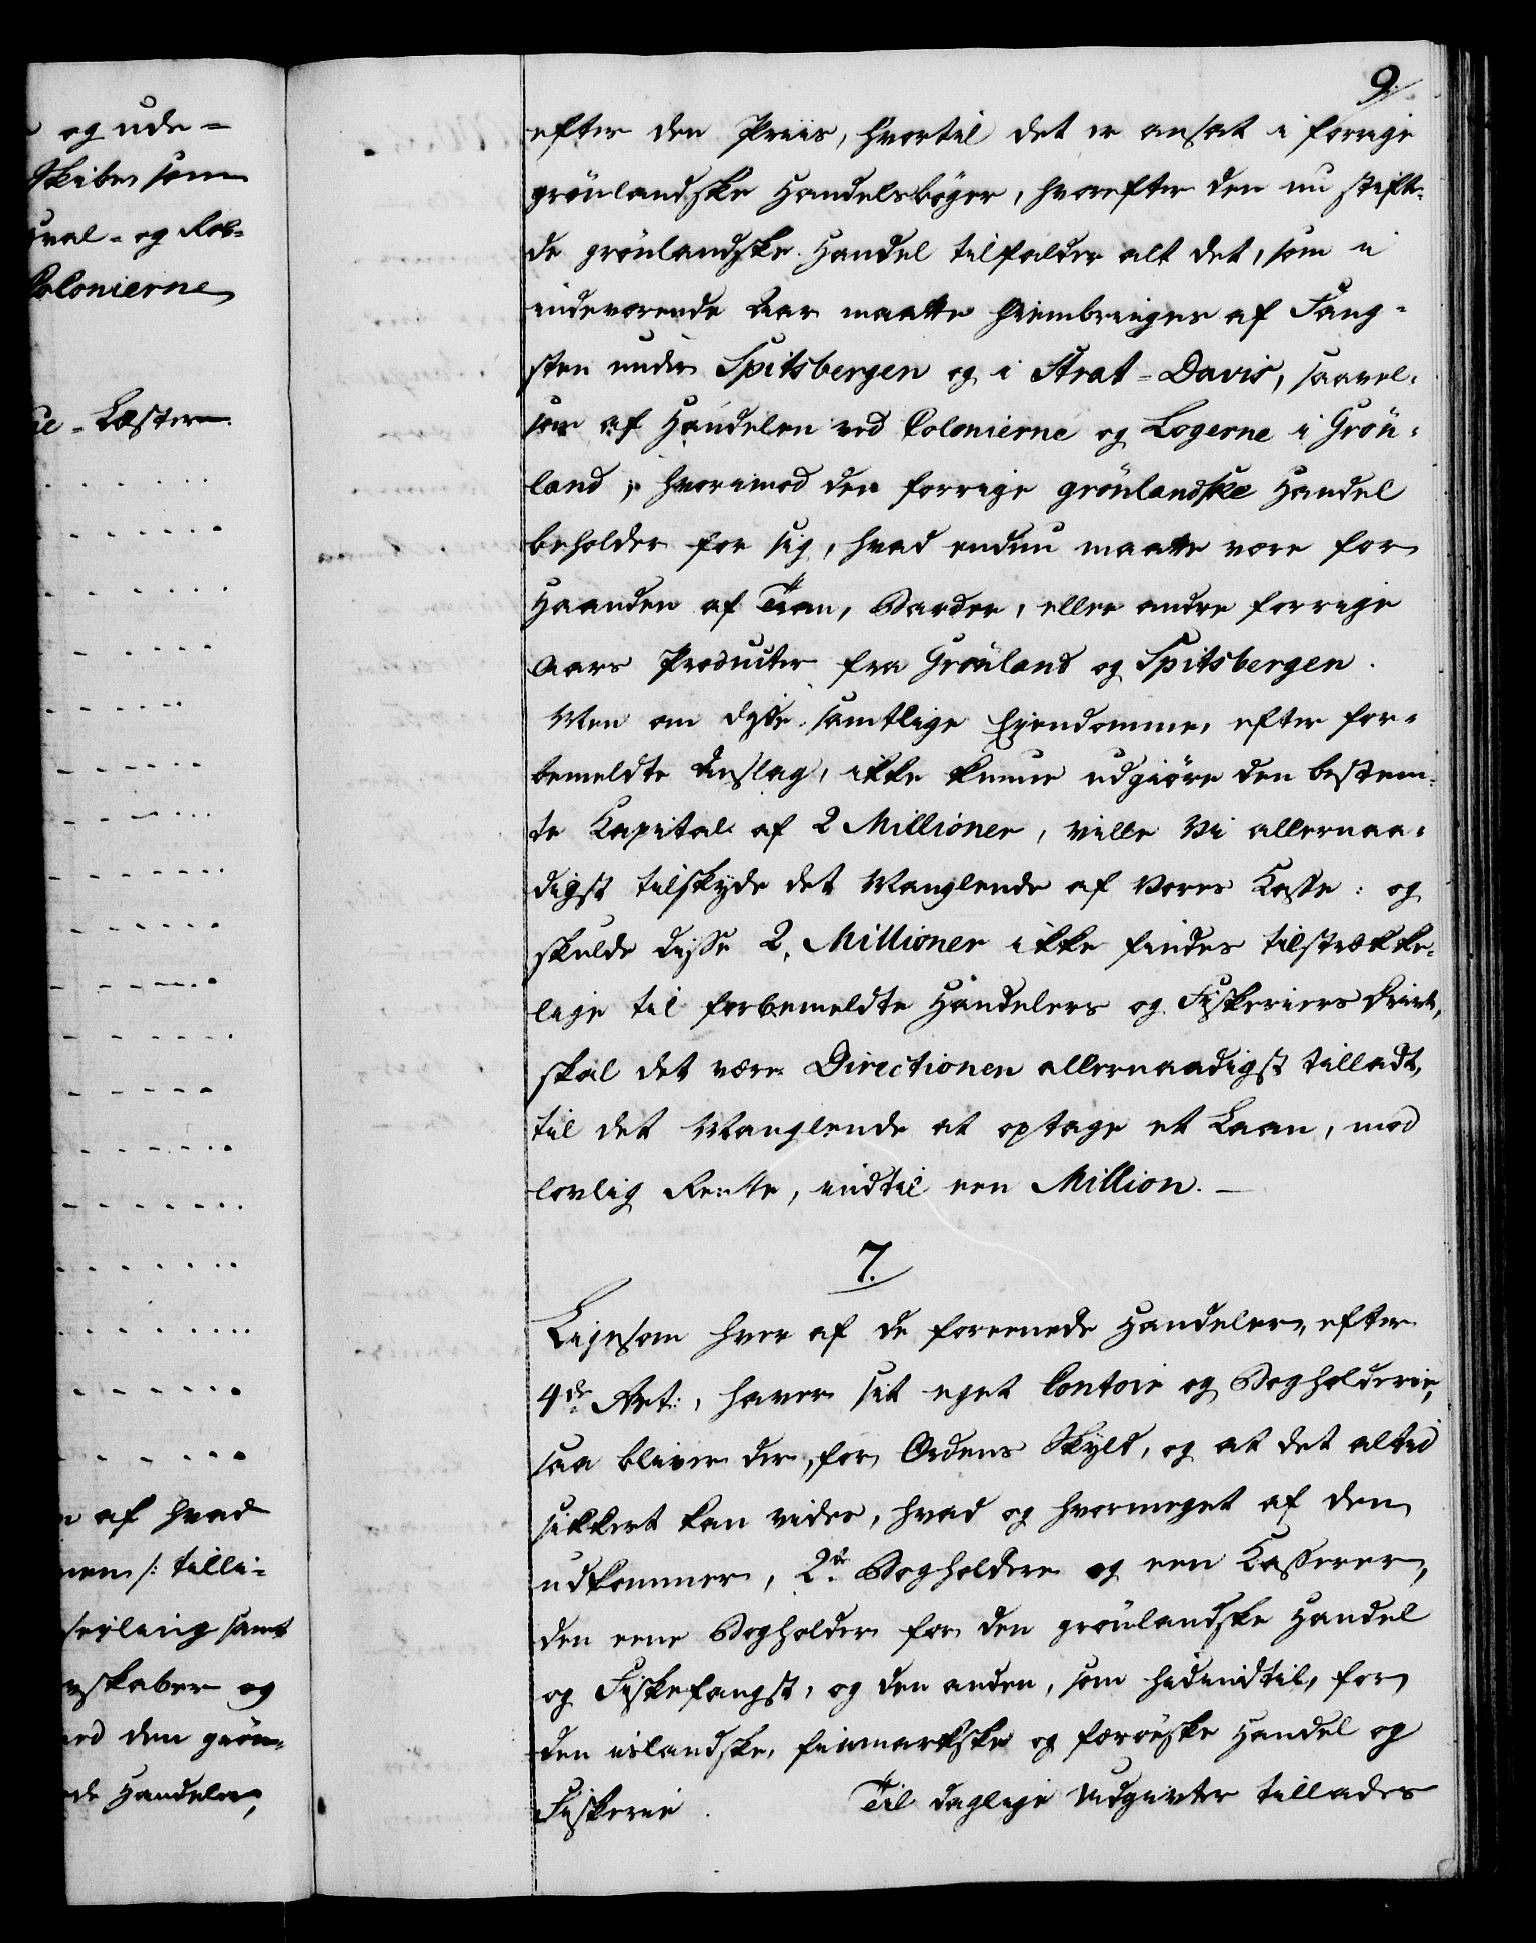 og ude-
Skibe, som
Hval- og Rob-
Colonierne
Læster
af hvad
/: tilli-
seyling samt
skaber og
den grøn-
Handeler,
9.
efter den Priis, hvortil det er ansat i forrige
grönlandske Handelsböger, hvorefter den nu stifte-
de grönlandske Handel tilfalder alt det, som i
indeværende Aar maatte hiembringes af Fang-
sten under Spitsbergen og i Strat-Davis, saavel-
som af Handelen ved Colonierne og Logerne i Grön-
land, hvorimod den forrige grönlandske Handel
beholder for sig, hvad endnu maatte være for
Haanden af Tran, Barder, eller andre forrige
Aars Producter fra Grönland og Spitsbergen.
Men om disse samtlige Ejendomme, efter for-
bemeldte Anslag, ikke kunne udgiöre den bestem-
te Kapital af 2 Millioner, ville Vi allernaa-
digst tilskyde det Manglende af Vores Kasse: og
skulde disse 2. Millioner ikke findes tilstrække-
lige til forbemeldte Handelers og Fiskeriers Drivt,
skal det være Directionen allernaadigst tilladt,
til det Manglende at optage et Laan, mod
lovlig Rente, indtil een Million. —
7.
Ligesom hver af de foreenede Handeler, efter
4de Art:, haver sit eget Contoir og Bogholderie,
saa bliver der, for Ordens Skyld, og at det altid
sikkert kan vides, hvad og hvormeget af den
udkommer, 2de Bogholdere og een Kasserer,
den eene Bogholder for den grönlandske Handel
og Fiskefangst, og den anden, som hidindtil, for
den islandske, finmarkske og færöiske Handel og
Fiskerie. Til daglige Udgivter tillades